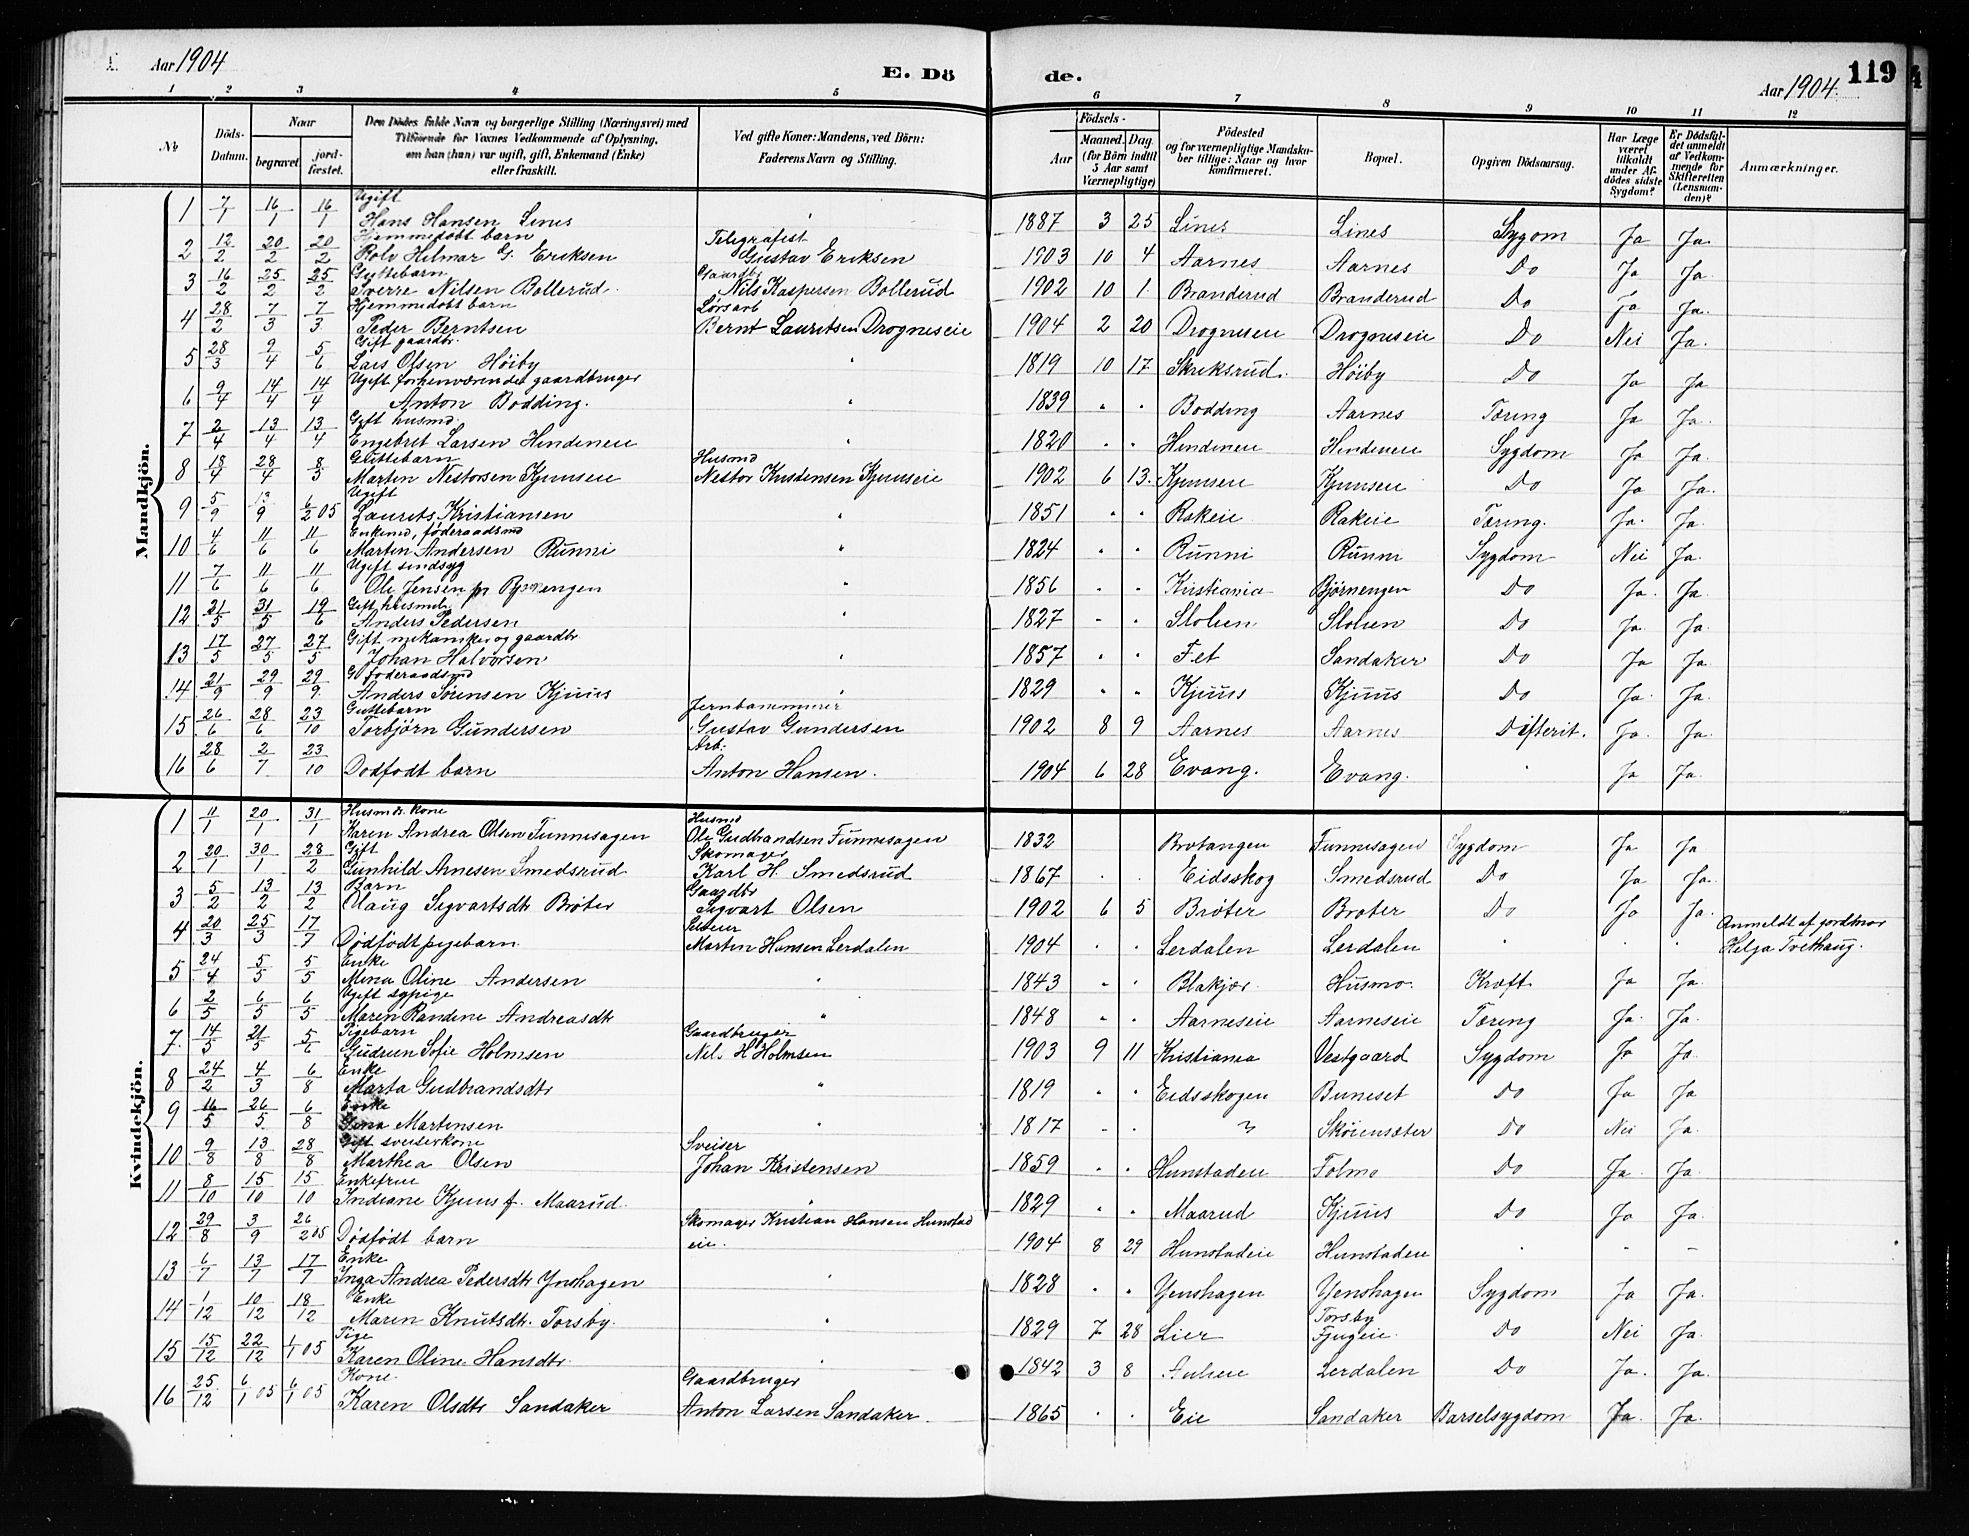 Aar 1904 E. Dö de. Aar 1904. 119
1 2 3 4 5 6 7 8 9 10 11 12
№ Döds-Datum. Naar begravet. jordfæstet. Den Dödes fulde Navn og borgerlige Stilling (Næringsvei) med Tilföiende for Voxnes Vedkommende af Oplysning, om han (hun) var ugift, gift, Enkemand (Enke) eller fraskilt. Ved gifte Koner: Mandens, ved Börn: Faderens Navn og Stilling. Födsels- Aar Maaned. Dag. (for Börn indtil 5 Aar samt Værnepligtige) Födested og for værnepligtige Mandskaber tillige: Naar og hvor konfirmeret. Bopæl. Opgiven Dödsaarsag. Har Læge været tilkaldt under Afdödes sidste Sygdom? Er Dödsfaldet anmeldt af Vedkommende for Skifteretten (Lensmanden)? Anmærkninger.
Mandkjön.
1 7/1 16/1 16/1 Ugift Hans Hansen Lines " 1887 3 25 Lines Lines Sygom Ja Ja.
2 12/2 20/2 20/2 Hjemmedöbt barn Rolv Hilmar G. Eriksen Telegrafist Gustav Eriksen 1903 10 4 Aarnes Aarnes Do Ja Ja.
3 16/2 25/2 25/2 Guttebarn Sverre Nilsen Bollerud. Gaardbr Nils Kaspersen Bollerud 1902 10 1. Branderud Branderud Do Ja Ja.
4 28/2 7/3 7/3 Hjemmedöbt barn Peder Berntsen Lørsarb Bernt Lauritsen Drogneseie 1904 2 20 Drogneseie Drogneseie Do Nei Ja.
5 28/3 9/4 5/6 Gift gaardbr. Lars Olsen Höiby " 1819 10 17 Skriksrud. Höiby Do Ja Ja
6 9/4 14/4 14/4 Ugift forhenværende gaardbruger Anton Bodding. " 1839 " " Bodding Aarnes Tæring Ja Ja.
7 2/4 13/4 13/4 Gift husmd. Engebret Larsen Hendeneie " 1820 " " Hendeneie Hendeneie Sygdom Ja Ja.
8 18/4 28/4 8/3 Guttebarn Martin Nestorsen Kjuuseie Husmd Nestor Kristensen Kjuuseie 1902 6 13. Kjuuseie Kjuuseie Do Ja Ja.
9 5/9 13/9 6/2 05 Ugift Laurits Kristiansen " 1851 " " Rakeie Rakeie Tæring. Ja. Ja.
10 4/6 11/6 11/6 Enkemd, föderaadsmd Martin Andersen Runni " 1824 " " Runni Runni Sygdom Nei Ja.
11 7/6 11/6 11/6 Ugift sindsyg Ole Jensen pr Bjørnengen " 1856 " " Kristiania Bjørnengen Do Ja. Ja.
12 21/5 31/5 19/6 Gift husmd. Anders Pedersen " 1827 " " Stolien Stolien Do Ja. Ja.
13 17/5 27/5 27/5 Gift mekaniker og gaardbr Johan Halvorsen " 1857 " " Fet Sandaker Do Ja Ja.
14 21/9 29/9 29/9 G föderaadsmd Anders Sörensen Kjuus " 1829 " " Kjuus Kjuus Do Ja. Ja.
15 26/6 28/6 23/10 Guttebarn Torbjörn Gundersen Jernbanemurer Gustav Gundersen 1902 8 9 Aarnes Aarnes Difterit. Ja. Ja.
16 28/6 2/7 23/10 Dodfodt barn Arb. Anton Hansen. 1904 6 28 Evang. Evang. " Ja Ja.
Kvindekjön.
1 11/1 20/1 31/1 Husmds kone Karen Andrea Olsen Funnesagen Husmd Ole Gudbrandsen Funnesagen 1832 Brotangen Funnesagen Sygdom Ja Ja
2 20/1 30/1 28/2 Gift Gunhild Arnesen Smedsrud Skomager Karl H. Smedsrud 1867 " " Eidsskog Smedsrud Do Ja Ja.
3 5/2 13/2 13/2 Barn Olaug Sigvartsdtr Brøter Gaardbr Sigvart Olsen 1902 6 5 Brøter Brøter Do Ja Ja.
4 20/3 25/3 17/7 Dödfödt pigebarn. Martin Hansen Lerdalen 1904 " " Lerdalen Lerdalen " " " Anmeldt af jordmor Helga Tvethaug.
5 24/4 5/5 5/5 Enke Mina Oline Andersen " 1843 " " Blakjer. Husmo. Kræft. Ja Ja.
6 2/5 6/5 6/5 Ugift sypige Maren Randine Andreasdtr " 1848 " " Aarneseie Aarneseie Tæring Ja. Ja.
7. 14/5 21/5 5/6 Pigebarn Gudrun Sofie Holmsen Gaardbruger Nils H Holmsen 1903 9 11 Kristiania Vestgaard Sygdom Ja Ja.
8 24/2 4/3 6/8 Enke Marta Gudbrandsdtr " 1819 " " Eidsskogen Buneset Do Ja Ja
9 16/5 26/5. 6/8 Enke Gina Martinsen " 1817 " " " Skøiensæter Do Nei Ja.
10 9/8 13/8 28/8 Gift sveiserkone Marthea Olsen Sveiser Johan Kristensen 1859 " " Hunstadeie Folmo Do Ja. Ja.
11 8/10 15/10 15/10 Enkefrue Indiane Kjuus f. Maarud. " 1829 " " Maarud Kjuus Do Ja Ja.
12 29/8 3/9 26/2 05 Dödfödt barn Skomager Kristian Hansen Hunstad eie. 1904 8 29 Hunstadeie Hunstadeie " " –
13 6/7 13/7 17/7 Enke Inga Andrea Pedersdtr Ynshagen " 1828 " " Yenshagen Yenshagen Sygdom Ja Ja.
14 1/12 10/12 18/12 Enke Maren Knutsdtr. Torsby. " 1829 7 28 Lier Torsby Fjugeie. Do Nei Ja.
15 15/12 22/12 1/1 05 Pige Karen Oline Hansdtr. " 1842 3 8 Lerdalen Do Ja. Ja.
16 25/12 6/1 05 6/1 05 Kone. Karen Olsdtr Sandaker Gaardbruger Anton Larsen Sandaker. 1865 " " Eie Sandaker Barselsygdom Ja. Ja.